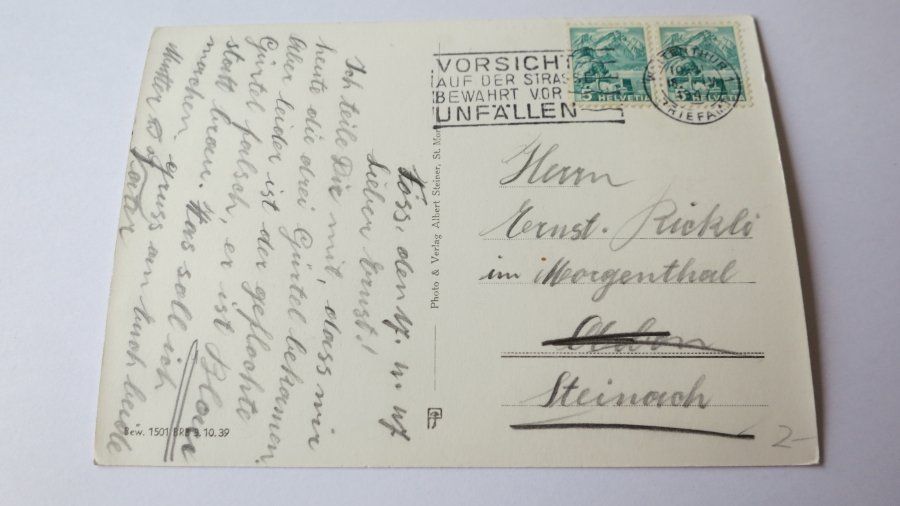 VORSICHT
AUF DER STRAS
BEWAHRT VOR
UNFÄLLEN
5 HELVETIA
HELVETIA
WINTERTHUR 1
BRIEFA
Töss, den 17.
Lieber Ernst!
Ich teile Dir mit, dass wir
heute die drei Gürtel bekamen.
Aber leider ist der geflochte
Gürtel falsch, er ist blau
statt braun. Was soll ich
machen. Gruss an Euch beide
Mutter & Vater
Photo & Verlag Albert Steiner, St. Mor
Herrn
Ernst. Rickli
im Morgenthal
Steinach
Bew. 1501 BRB 3.10.39
2-